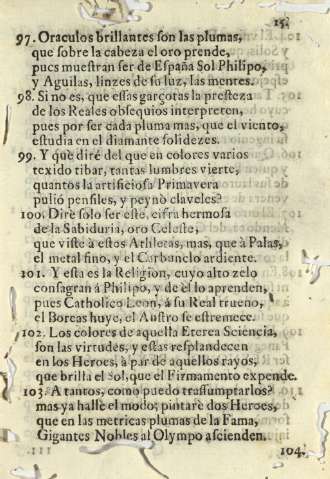 15.
97. Oraculos brillantes son las plumas,
que sobre la cabeza el oro prende,
pues muestran ser de España Sol Philipo,
y Aguilas, linzes de su luz, las mentes.
98. Si no es, que essas garçotas la presteza
de los Reales obsequios interpreten,
pues por ser cada pluma mas, que el viento,
estudia en el diamante solidezes.
99. Y què dirè del que en colores varios
texido tibar, tantas lumbres vierte,
quantos la artificiosa Primavera
puliò pensiles, y peynò claveles?
100. Dirè solo ser este, cifra hermosa
de la Sabiduria, oro Celeste,
que viste à estos Athletas, mas, que à Palas,
el metal fino, y el Carbunclo ardiente.
101. Y esta es la Religion, cuyo alto zelo
consagran à Philipo, y de èl lo aprenden,
pues Catholico Leon, à su Real trueno,
el Boreas huye, el Austro se estremece.
102. Los colores de aquella Eterea Sciencia,
son las virtudes, y estas resplandecen
en los Heroes, à par de aquellos rayos,
que brilla el Sol, que el Firmamento expende.
103. A tantos, como puedo trassumptarlos?
mas ya hallè el modo; pintarè dos Heroes,
que en las metricas plumas de la Fama,
Gigantes Nobles al Olympo ascienden.
104.